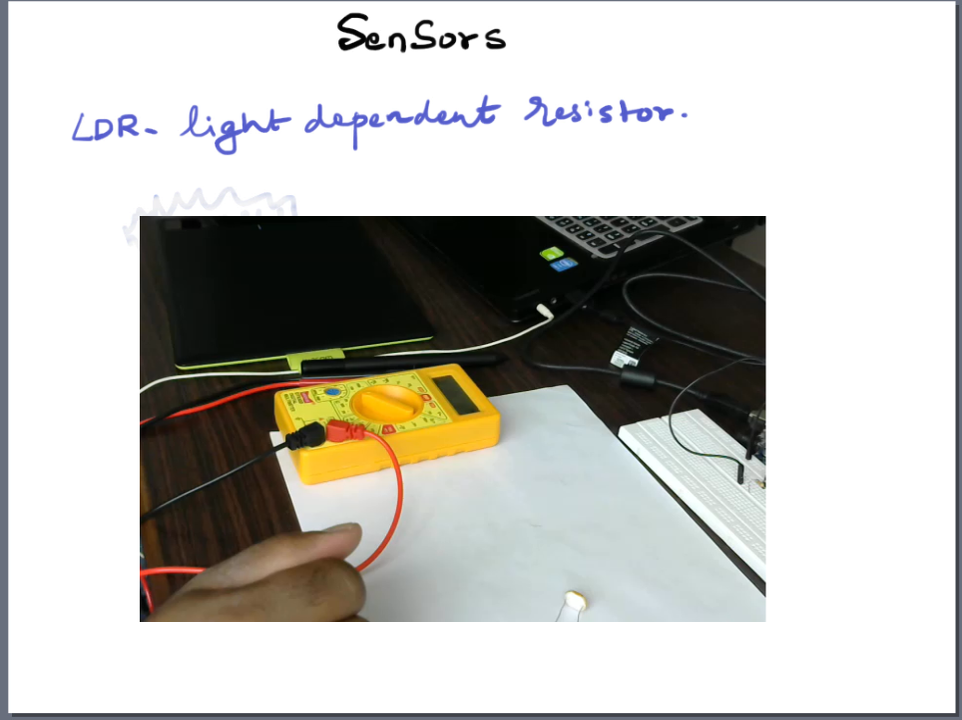 Sensors
LDR- light dependent resistor.